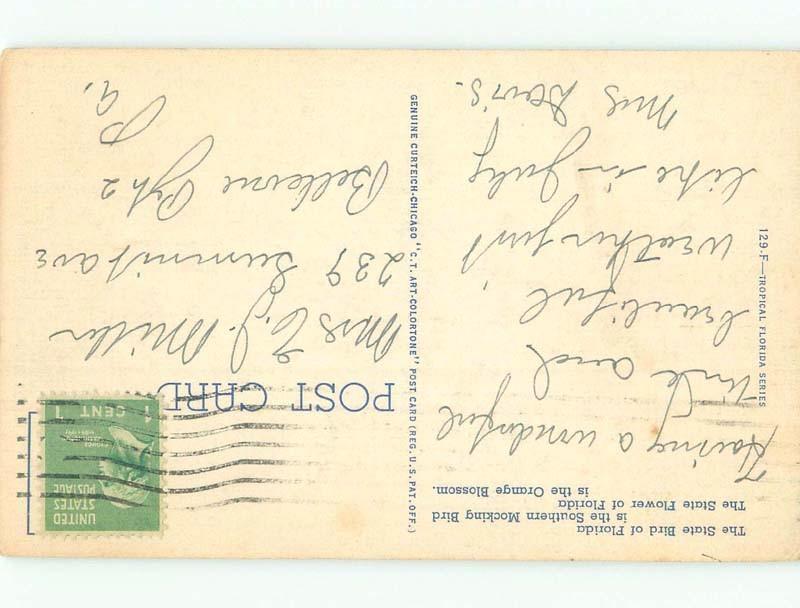 The State Bird of Florida
is the Southern Mocking Bird
The State Flower of Florida
is the Orange Blossom.
Having a wonderful
time and
beautiful
weather just
like in July
Mrs Davis.
129-F—TROPICAL FLORIDA SERIES
GENUINE CURTEICH-CHICAGO "C.T. ART-COLORTONE" POST CARD (REG. U.S. PAT. OFF.)
POST CARD
UNITED
STATES
POSTAGE
1 CENT 1
Mrs E. J. Miller
239 Summit ave
Bellevue Pgh 2
Pa.